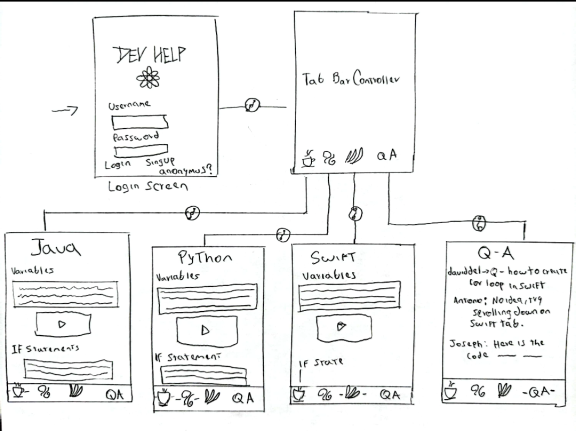 DEV HELP
Username
Password
Login SingUp
anonymus?
Login Screen
Tab Bar Controller
QA
Java
Variables
IF Statements
QA
Python
Variables
IF Statement
QA
Swift
Variables
IF State
QA
Q-A
daviddel→Q- how to create
for loop in swift
Antonio: No idea, try
scrolling down on
Swift tab.
Joseph: Here is the
code
-QA-